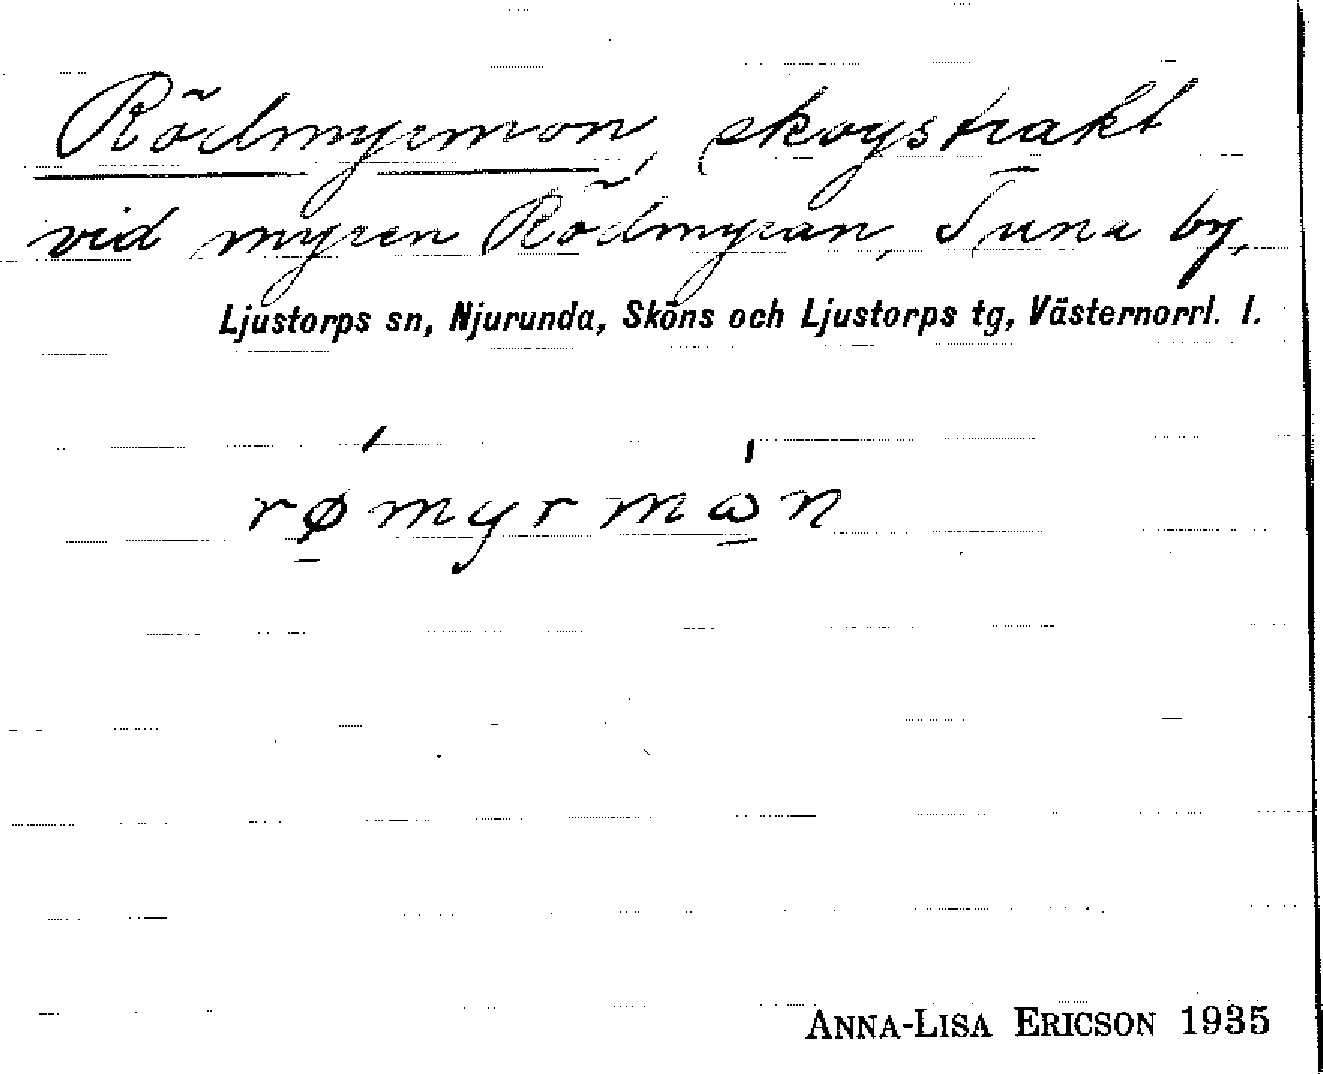 Rödmyrmon, skogstrakt
vid myren Rödmyran, Tuna by,
Ljustorps sn, Njurunda, Sköns och Ljustorps tg, Västernorrl. l.
rǿ̱myrmω̱̍n
ANNA-LISA ERICSON 1935